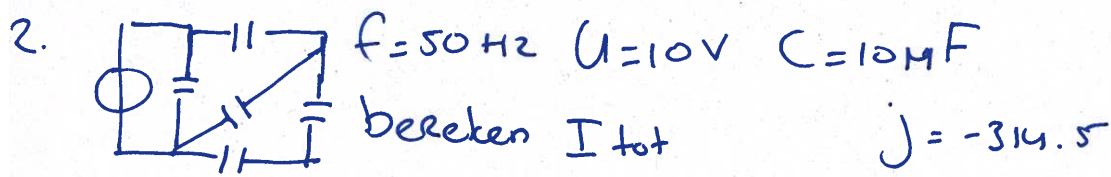 2. f=50Hz U=10V C=10μF
bereken I tot j=-314.5